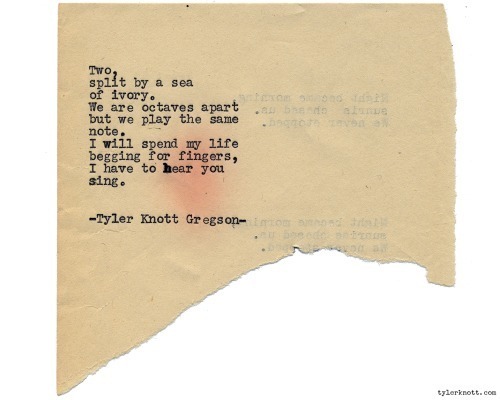 Two,
split by a sea
of ivory.
We are octaves apart
but we play the same
note.
I will spend my life
begging for fingers,
I have to hear you
sing.
-Tyler Knott Gregson-
tylerknott.com